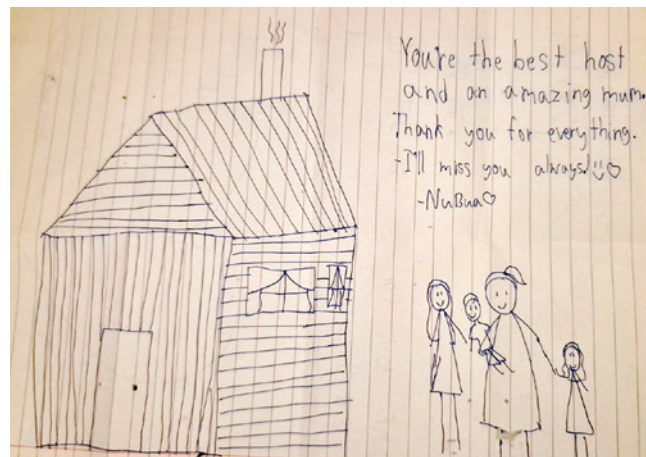 You're the best host
and an amazing mum.
Thank you for everything.
-I'll miss you always!
-NuBua